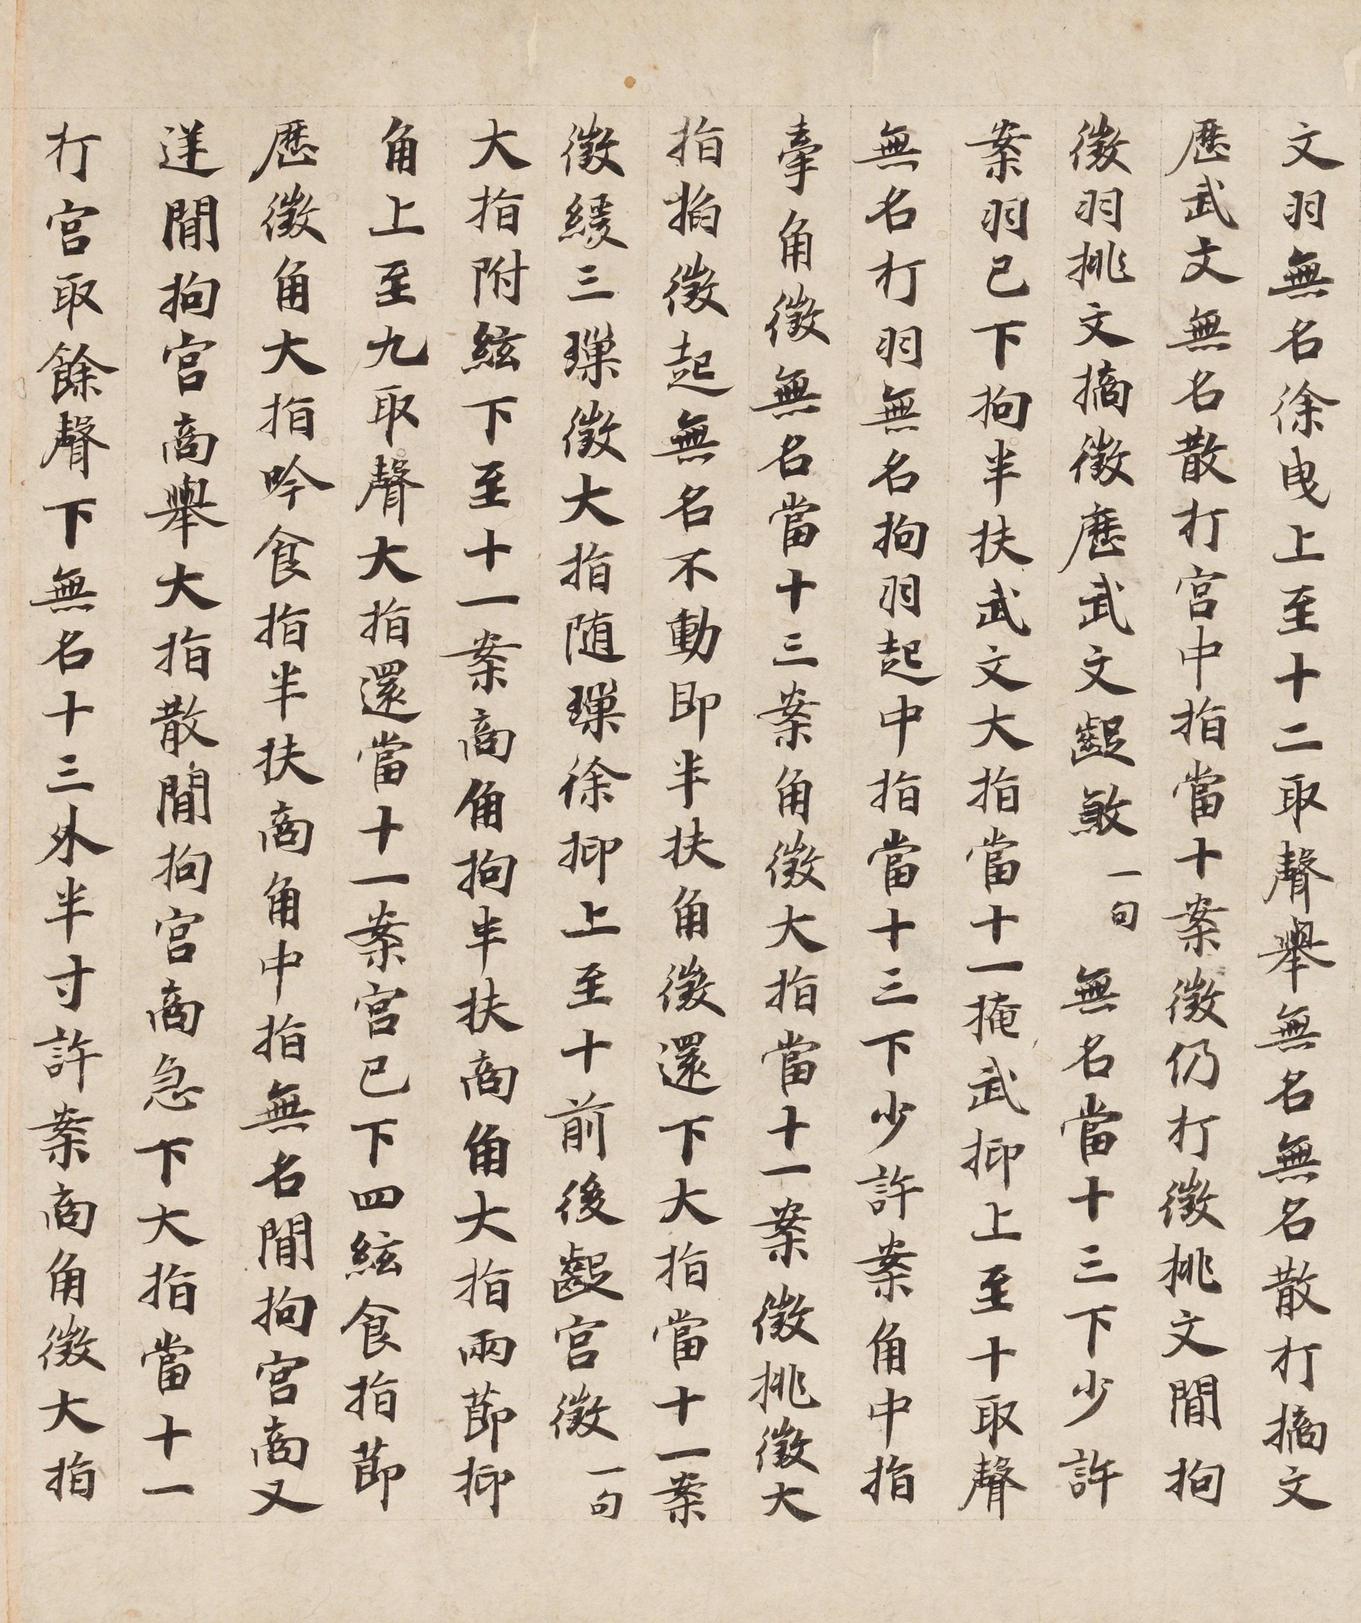 文羽無名徐曳上至十二取聲舉無名無名散打摘文
歷武文無名散打宮中指當十案徵仍打徵挑文間拘
徵羽挑文摘徵歷武文齪斂一句無名當十三下少許
案羽已下拘半扶武文大指當十一掩武抑上至十取聲
無名打羽無名拘羽起中指當十三下少許案角中指
牽角徵無名當十三案角徵大指當十一案徵挑徵大
指掐徵起無名不動即半扶角徵還下大指當十一案
徵緩三璅徵大指随璅徐抑上至十前後齪宮徵一句
大指附絃下至十一案商角拘半扶商角大指兩節抑
角上至九取聲大指還當十一案宮已下四絃食指節
歷徵角大指吟食指半扶商角中指無名間拘宮商又
送間拘宮商舉大指散間拘宮商急下大指當十一
打宮取餘聲下無名十三外半寸許案商角徵大指